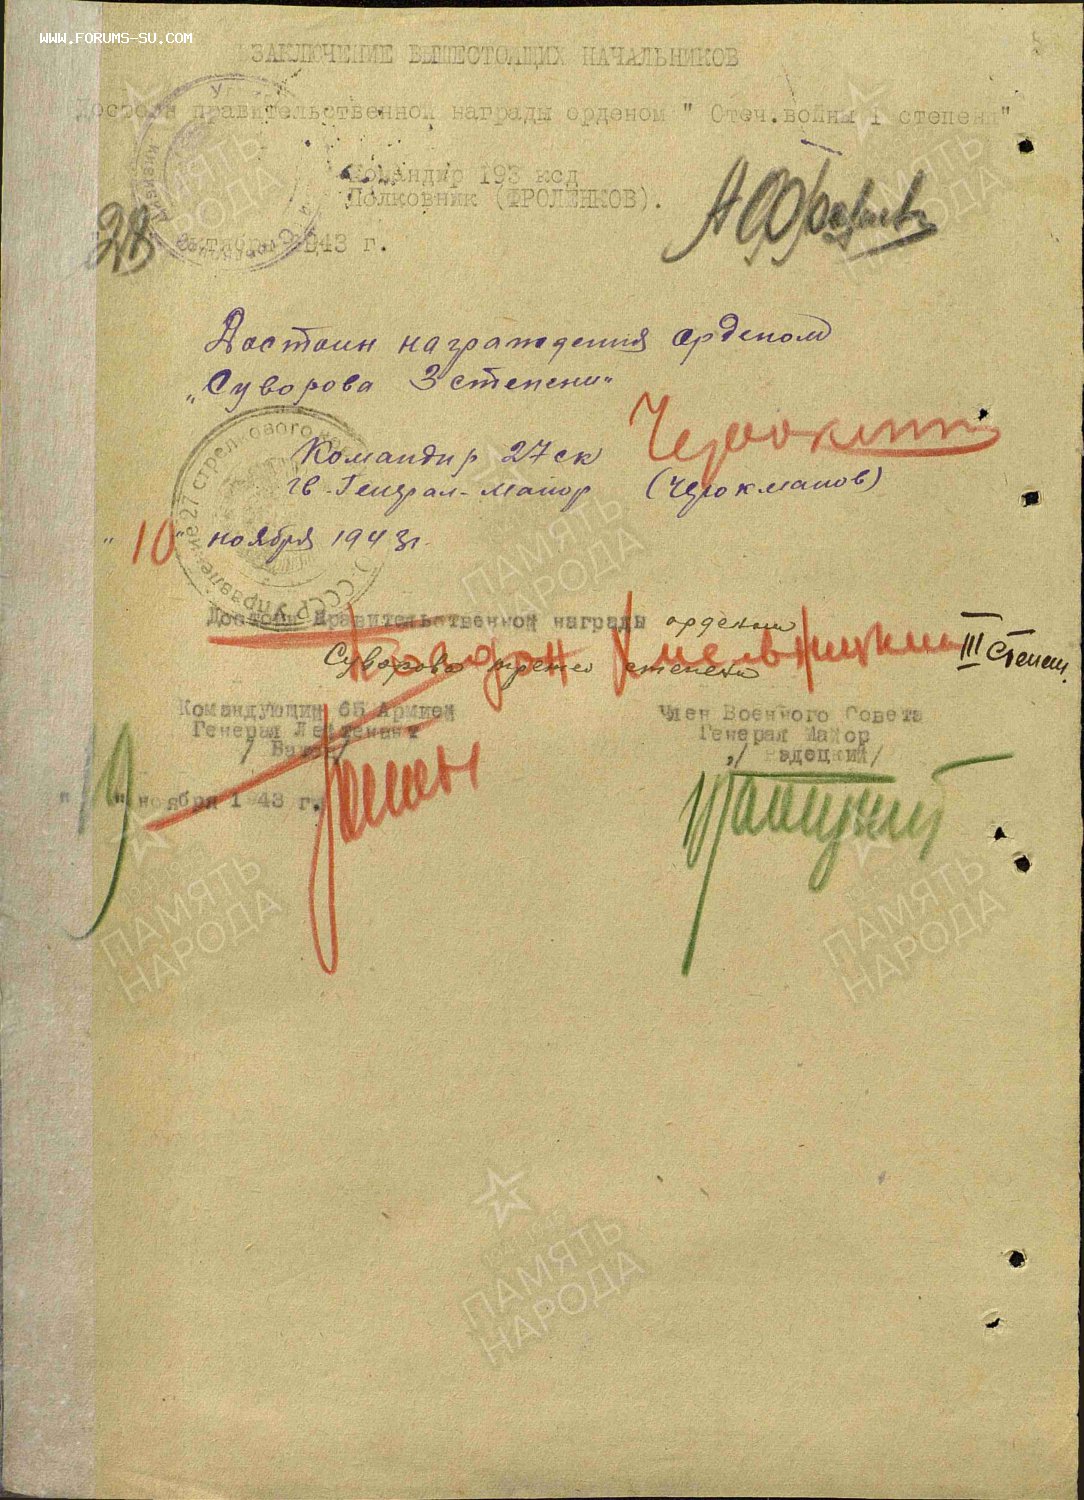 WWW.FORUMS-SU.COM
ЗАКЛЮЧЕНИЕ ВЫШЕСТОЯЩИХ НАЧАЛЬНИКОВ
Достоин правительственной награды орденом " Отеч.войны 1 степени"
Командир 193 ксд
Полковник (ФРОЛЕНКОВ).
28 октября 1943 г.
Достоин награждения орденом
„Суворова 3 степени"
Командир 27 ск
гв. Генерал-майор (Черокманов)
"10" ноября 1943 г.
Достоин Правительственной награды орденом
Суворова третьей степени
Богдан Хмельницкий III степени.
Командующий 65 Армией
Генерал Лейтенант
/ Батов/
Член Военного Совета
Генерал Майор
/ Радецкий/
" " ноября 1943 г.
Управление 27 стрелкового
ПАМЯТЬ
НАРОДА
ПАМЯТЬ
НАРОДА
ПАМЯТЬ
НАРОДА
ПАМЯТЬ
НАРОДА
ПАМЯТЬ
НАРОДА
ПАМЯТЬ
НАРОДА